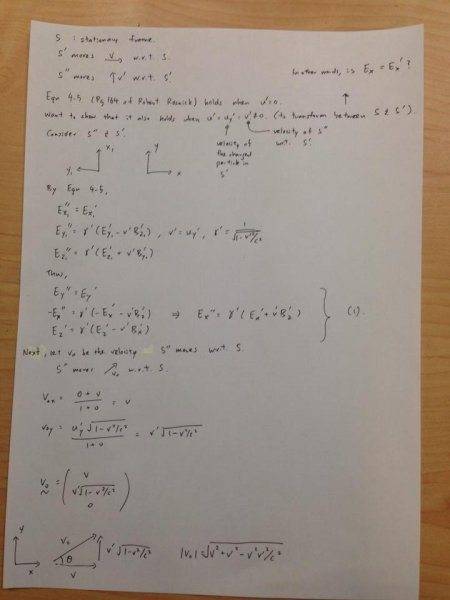 S : stationary frame.
S' moves →v w.r.t. S.
S'' moves ↑v' w.r.t. S'
In other words, is Ex = Ex' ?
Eqn 4.5 (Pg 164 of Robert Resnick) holds when u'=0.
Want to show that it also holds when u' = uy' = v' ≠ 0. (to transform between S & S').
Consider S'' & S'.
velocity of the charged particle in S'
velocity of S'' w.r.t. S'.
x1
y1
y
x
By Eqn 4.5,
Ex1'' = Ex1'
Ey1'' = γ'(Ey1' - v'Bz1') , v' = uy' , γ' = 1/√(1-v'²/c²)
Ez1'' = γ'(Ez1' + v'By1')
Thus,
Ey'' = Ey'
-Ex'' = γ'(-Ex' - v'Bz') ⇒ Ex'' = γ'(Ex' + v'Bz')
Ez'' = γ'(Ez' - v'Bx')
(1).
Next, let v0 be the velocity S'' moves w.r.t. S.
S'' moves ↗v0 w.r.t. S.
v0x = (0 + v)/(1 + 0) = v
v0y = uy'√(1-v²/c²)/(1+0) = v'√(1-v²/c²)
v0 = ( v
v'√(1-v²/c²)
0 )
y
x
v0
θ
v
v'√(1-v²/c²)
|v0| = √(v² + v'² - v²v'²/c²)